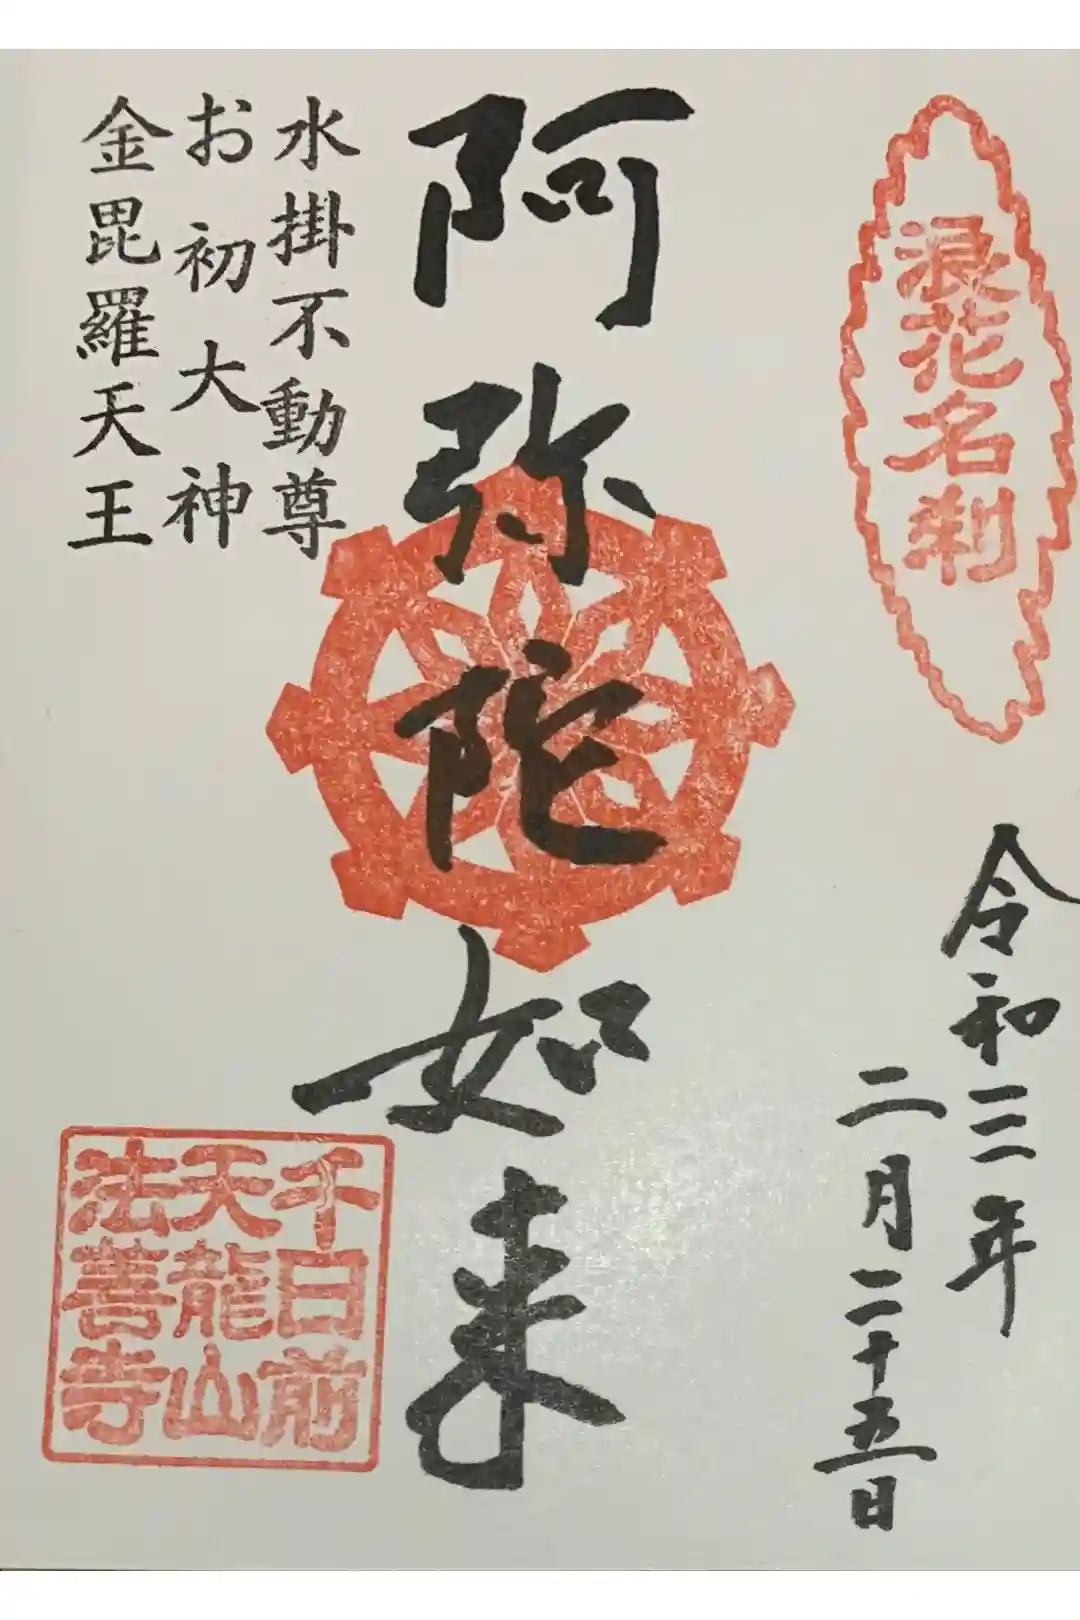 浪花名刹
令和三年
二月二十五日
阿弥陀如来
水掛不動尊
お初大神
金毘羅天王
千日前
天龍山
法善寺